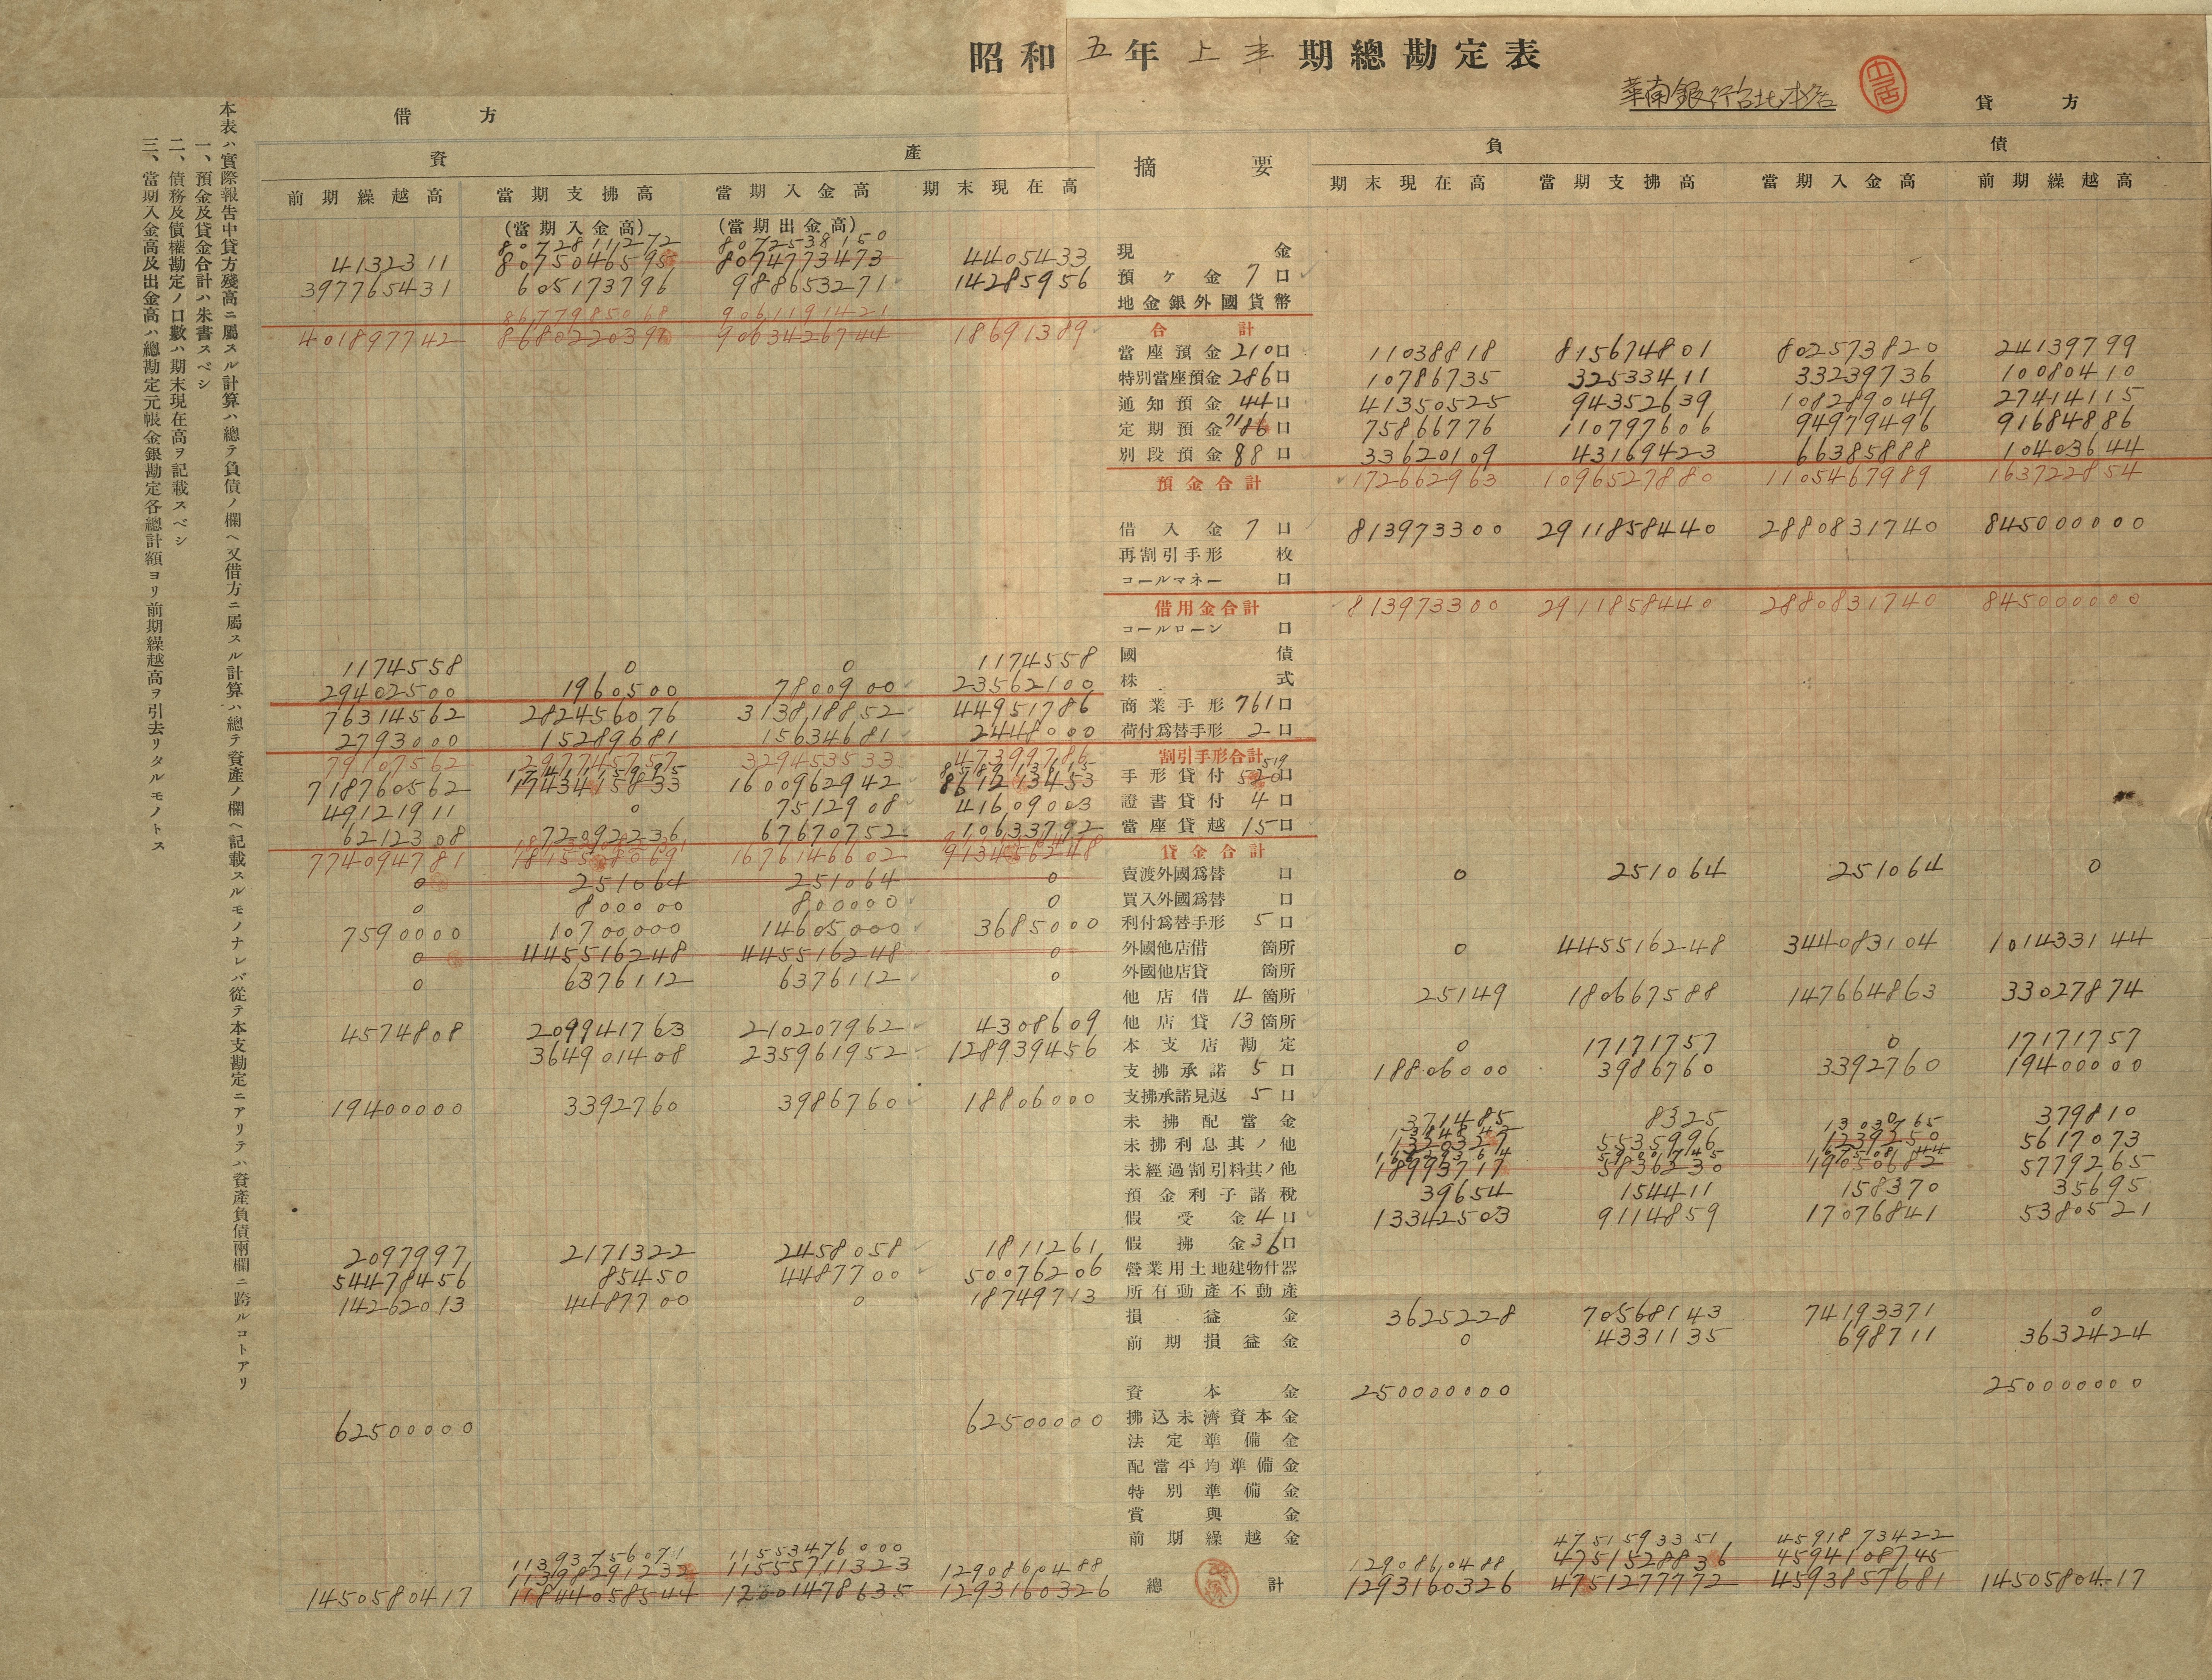 昭和五年上半期總勘定表
華南銀行台北本店
借方 貸方
資產 摘要 負債
前期繰越高 當期支拂高 當期入金高 期末現在高 期末現在高 當期支拂高 當期入金高 前期繰越高
(當期入金高) (當期出金高)
80728111272 8072538150
4132311 8075046595 8074773473 4405433 現金
397765431 605173796 988653271 14285956 預ヶ金 7口
地金銀外國貨幣
8677985068 9061191421
401897742 8680220391 9063426744 18691389 合計
當座預金 210口 11038818 815674801 802573820 24139799
特別當座預金 286口 10786735 32533411 33239736 10080410
通知預金 44口 41350525 94352639 108289049 27414115
定期預金 口 75866776 110797606 94979496 91684886
別段預金 88口 33620109 43169423 66385888 10403644
預金合計 172662963 1096527880 1105467989 163722854
借入金 7口 813973300 2911858440 2880831740 845000000
再割引手形 枚
コールマネー 口
借用金合計 813973300 2911858440 2880831740 845000000
コールローン 口
1174558 0 0 1174558 國債
29402500 1960500 7800900 23562100 株式
76314562 282456076 313818852 44951786 商業手形 761口
2793000 15289681 15634681 2448000 荷付爲替手形 2口
79107562 297745757 329453533 47399786 割引手形合計
718760562 1743415833 1600962942 861213453 手形貸付 519 520口
49121911 0 7512908 41609003 證書貸付 4口
6212308 72092236 67670752 10633792 當座貸越 15口
774094781 1676146602 貸金合計
0 251064 251064 0 賣渡外國爲替 口 0 251064 251064 0
0 800000 800000 0 買入外國爲替 口
7590000 10700000 14605000 3685000 利付爲替手形 5口
0 445516248 445516248 0 外國他店借 箇所 0 445516248 344083104 101433144
0 6376112 6376112 0 外國他店貸 箇所
他店借 4箇所 25149 180667588 147664863 33027874
4574808 209941763 210207962 4308609 他店貸 13箇所
364901408 235961952 128939456 本支店勘定 0 17171757 0 17171757
支拂承諾 5口 18806000 3986760 3392760 19400000
19400000 3392760 3986760 18806000 支拂承諾見返 5口
未拂配當金 371485 8325 379810
未拂利息其ノ他 5535996 5617073
未經過割引料其ノ他 18993717 5836230 19050682 5779265
預金利子諸稅 39654 154411 158370 35695
假受金 4口 13342503 9114859 17076841 5380521
2097997 2171322 2458058 1811261 假拂金 36口
54478456 85450 4487700 50076206 營業用土地建物什器
14262013 4487700 0 18749713 所有動產不動產
損益金 3625228 70568143 74193371 0
前期損益金 0 4331135 698711 3632424
資本金 250000000 250000000
62500000 62500000 拂込未濟資本金
法定準備金
配當平均準備金
特別準備金
賞與金
前期繰越金
11393756071 11553476000 1290860488 1290860488 4751593351 4591873422
11398291232 11555711323 4751528836 4594108745
1450580417 11844058544 12001478635 1293160326 總計 1293160326 4751277772 4593857681 1450580417
本表ハ實際報告中貸方殘高ニ屬スル計算ハ總テ負債ノ欄ヘ又借方ニ屬スル計算ハ總テ資產ノ欄ヘ記載スルモノナレバ從テ本支勘定ニアリテハ資產負債兩欄ニ跨ルコトアリ
一、預金及貸金合計ハ朱書スベシ
二、債務及債權勘定ノ口數ハ期末現在高ヲ記載スベシ
三、當期入金高及出金高ハ總勘定元帳金銀勘定各總計額ヨリ前期繰越高ヲ引去リタルモノトス